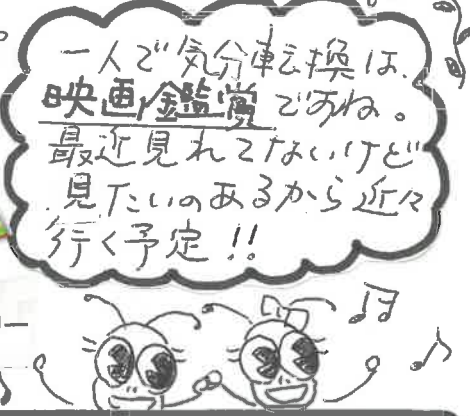 一人で気分転換は、
映画鑑賞ですね。
最近見れてないけど
見たいのあるから近々
行く予定!!